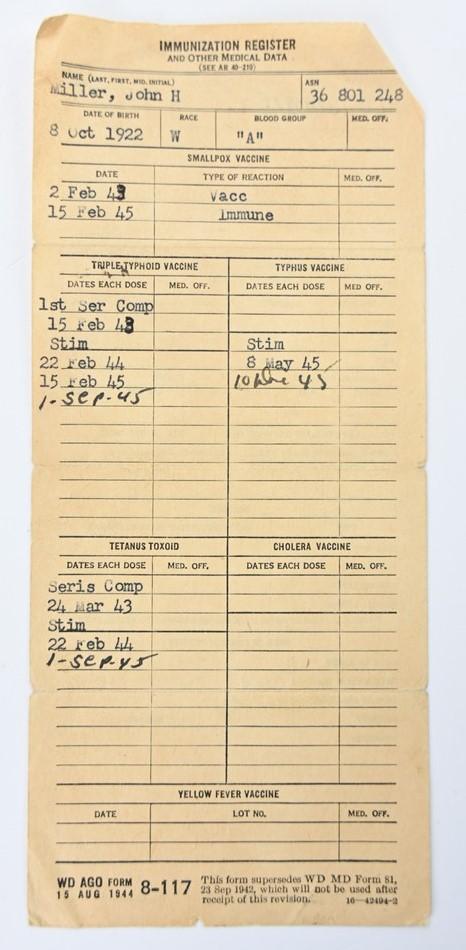 IMMUNIZATION REGISTER
AND OTHER MEDICAL DATA
(SEE AR 40-210)
NAME (LAST, FIRST, MID. INITIAL) ASN
Miller, John H 36 801 248
DATE OF BIRTH RACE BLOOD GROUP MED. OFF.
8 Oct 1922 W "A"
SMALLPOX VACCINE
DATE TYPE OF REACTION MED. OFF.
2 Feb 43 Vacc
15 Feb 45 Immune
TRIPLE TYPHOID VACCINE TYPHUS VACCINE
DATES EACH DOSE MED. OFF. DATES EACH DOSE MED. OFF.
1st Ser Comp
15 Feb 43
Stim Stim
22 Feb 44 8 May 45
15 Feb 45 10 45
1-SEP-45
TETANUS TOXOID CHOLERA VACCINE
DATES EACH DOSE MED. OFF. DATES EACH DOSE MED. OFF.
Seris Comp
24 Mar 43
Stim
22 Feb 44
1-SEP-45
YELLOW FEVER VACCINE
DATE LOT NO. MED. OFF.
WD AGO FORM 8-117 This form supersedes WD MD Form 81,
15 AUG 1944 23 Sep 1942, which will not be used after
receipt of this revision. 16—42494-2